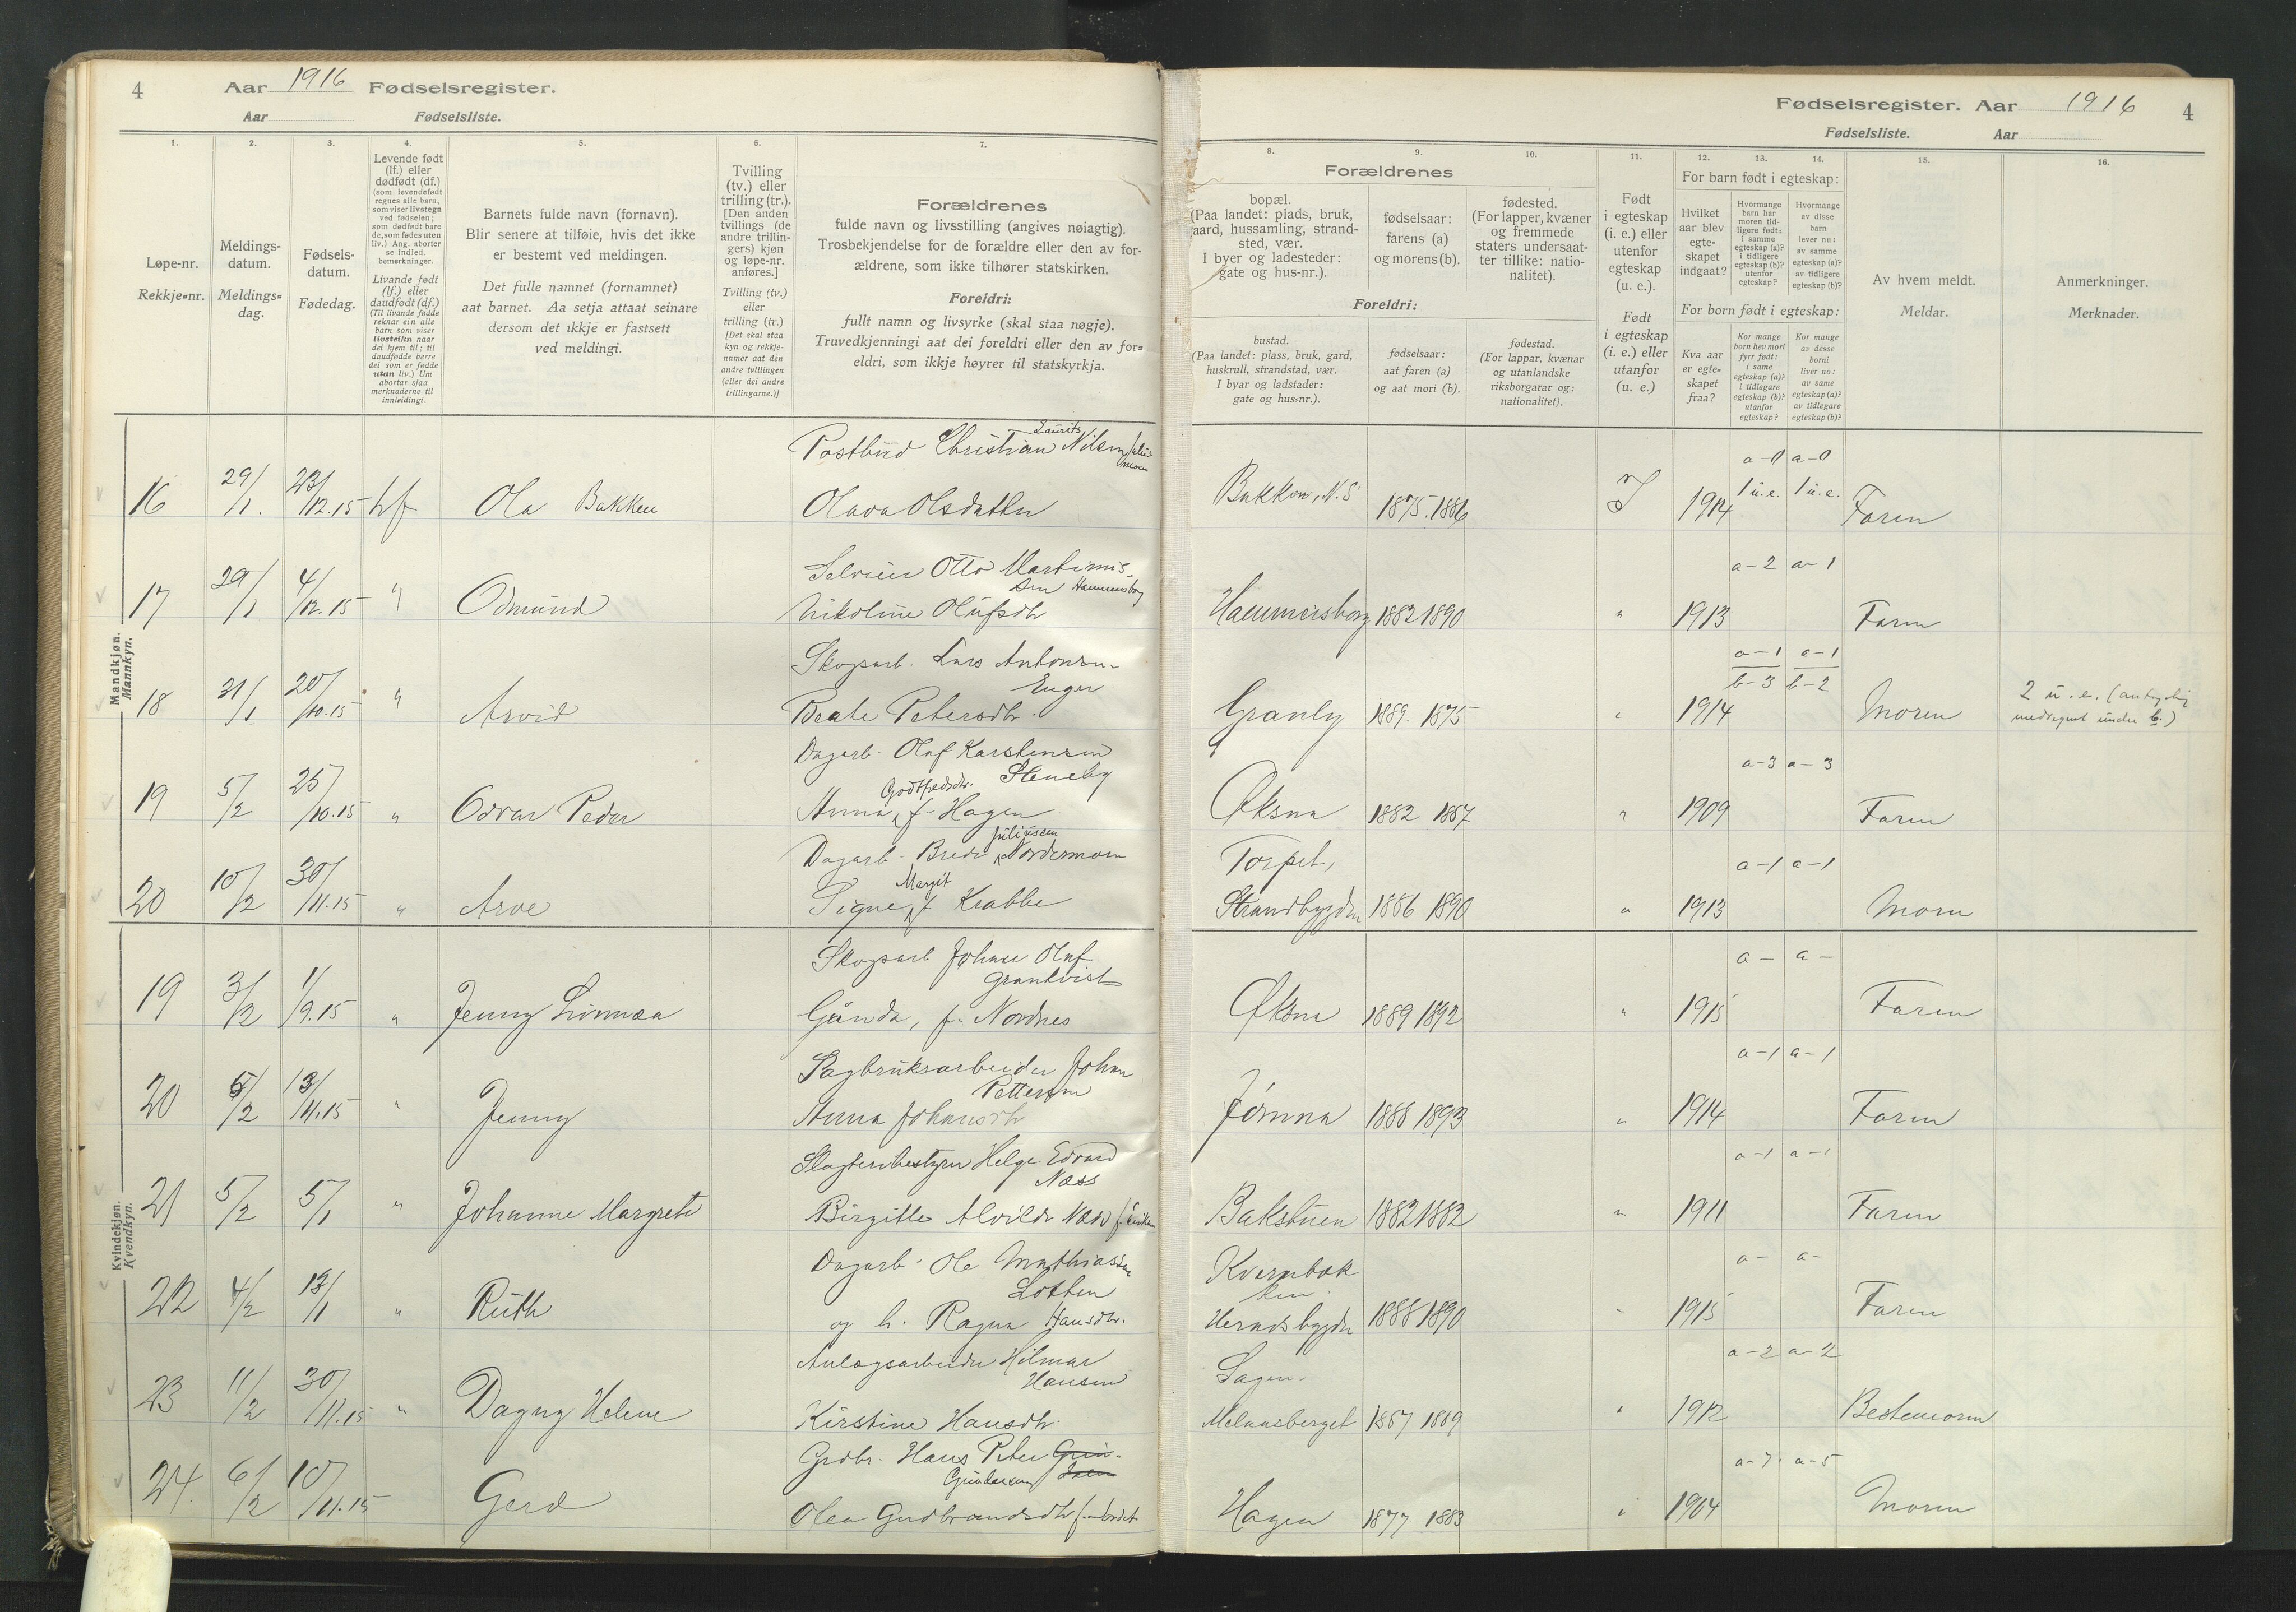 4
Aar 1916 Fødselsregister.
Aar Fødselsliste.
Fødselsregister. Aar 1916
4
Fødselsliste. Aar
1.
Løpe-nr.
Rekkje-nr.
2.
Meldings-
datum.
Meldings-
dag.
3.
Fødsels-
datum.
Fødedag.
4.
Levende født
(lf.) eller
dødfødt (df.)
(som levendefødt
regnes alle barn,
som viser livstegn
ved fødselen;
som dødfødt bare
de, som fødes uten
liv.) Ang. aborter
se indled.
bemerkninger.
Livande født
(lf.) eller
daudfødt (df.)
(Til livande fødde
reknar ein alle
barn som viser
livsteikn naar
dei kjem til; til
daudfødde berre
dei som er fødde
utan liv.) Um
abortar sjaa
merknaderne til
innleidingi.
5.
Barnets fulde navn (fornavn).
Blir senere at tilføie, hvis det ikke
er bestemt ved meldingen.
Det fulle namnet (fornamnet)
aat barnet. Aa setja attaat seinare
dersom det ikkje er fastsett
ved meldingi.
6.
Tvilling
(tv.) eller
trilling (tr.).
[Den anden
tvillings (de
andre trillin-
gers) kjøn
og løpe-nr.
anføres.]
Tvilling (tv.)
eller
trilling (tr.)
[Det skal staa
kyn og rekkje-
numer aat den
andre tvillingen
(eller dei andre
trillingarne.)]
7.
Forældrenes
fulde navn og livsstilling (angives nøiagtig).
Trosbekjendelse for de forældre eller den av for-
ældrene, som ikke tilhører statskirken.
Foreldri:
fullt namn og livsyrke (skal staa nøgje).
Truvedkjenningi aat dei foreldri eller den av for-
eldri, som ikkje høyrer til statskyrkja.
8.
9.
10.
Forældrenes
bopæl.
(Paa landet: plads, bruk,
gaard, hussamling, strand-
sted, vær.
I byer og ladesteder:
gate og hus-nr.).
fødselsaar:
farens (a)
og morens (b).
fødested.
(For lapper, kvæner
og fremmede
staters undersaat-
ter tillike: natio-
nalitet).
Foreldri:
bustad.
(Paa landet: plass, bruk, gard,
huskrull, strandstad, vær.
I byar og ladstader:
gate og hus-nr.).
fødselsaar:
aat faren (a)
og aat mori (b).
fødestad.
(For lappar, kvænar
og utanlandske
riksborgarar og:
nationalitet).
11.
Født
i egteskap
(i. e.) eller
utenfor
egteskap
(u. e.).
Født
i egteskap
(i. e.) eller
utanfor
(u. e.)
12.
13.
14.
For barn født i egteskap:
Hvilket
aar blev
egte-
skapet
indgaat?
Hvormange
barn har
moren tid-
ligere født:
i samme
egteskap (a)?
i tidligere
egteskap (b)?
utenfor
egteskap?
Hvormange
av disse
barn
lever nu:
av samme
egteskap (a)?
av tidligere
egteskap (b)?
For born født i egteskap:
Kva aar
er egte-
skapet
fraa?
Kor mange
born hev mori
fyrr født:
i same
egteskap (a)?
i tidlegare
egteskap (b)?
utanfor
egteskap?
Kor mange
av desse
borni
liver no:
av same
egteskap (a)?
av tidlegare
egteskap (b)?
15.
Av hvem meldt.
Meldar.
16.
Anmerkninger.
Merknader.
Mandkjøn.
Mannkyn.
Laurits
Postbud Christian Nilsen
a-0 a-0
16 29/1. 23/12.15 Lf Ola Bakken Olava Olsdatter Bakken, N.S. 1875. 1886 I 1914 1 u.e. 1 u.e. Faren
Selveier Otto Martinius-
sen Hammersborg a-2 a-1
17 29/1 4/12.15 " Odmund Nikoline Olufsdtr Hammersborg 1882 1890 " 1913 Faren
Skogsarb. Lars Antonsen-
Enger a-1 a-1
b-3 b-2
18 31/1 20/10.15 " Arvid Beate Petersdtr. Granly 1889. 1875 " 1914 Moren 2 u.e. (antagelig
medregnet under b.)
Dagarb. Olaf Karstensen
Steneby a-3 a-3
Godtfredsdtr.
19 5/2 25/10.15 " Odvar Peder Anna, f. Hagen Øksna 1882 1887 " 1909 Faren
Juliussen
Dagarb. Brede Nordermoen Torpet, a-1 a-1
Margit
20 10/2 30/11.15 " Arve Signe, f. Krabbe Strandbygden 1886 1890 " 1913 Moren
Kvindekjøn.
Kvendkyn.
Skogsarb Johan Olaf
Grankvist a- a-
19 3/2 1/9.15 " Jenny Linnæa Gunda, f. Nordnes Øksna 1889 1892 " 1915 Faren
Sagbruksarbeider Johan
Pettersen a-1 a-1
20 5/2 13/11.15 " Jenny Anna Johansdtr Jømna 1888 1893 " 1914 Faren
Slagteribestyrer Helge Edvard
Næss a-1 a-1
21 5/2 5/1 " Johanne Margrete Birgitte Alvilde Næss f. 
Bakstuen 1882 1882 " 1911 Faren
Dagarb. Ole Mathiassen
Lotten Kvernbæk
ken a- a-
22 4/2 13/1 " Ruth og h. Ragna Hansdtr. Hernesbygden 1888 1890 " 1915 Faren
Anlægsarbeider Hilmar
Hansen Sagen- a-2 a-2
23 11/2 30/11.15 " Dagny Helene Kirstine Hansdtr. Melaasberget 1887 1889 " 1912 Bestemoren
Grdbr. Hans Peter
Gundersen a-7. a-5
24. 6/2 10/11.15 Gerd Olea Gudbrandsdtr f. Hagen 1877 1883 " 1904 Moren